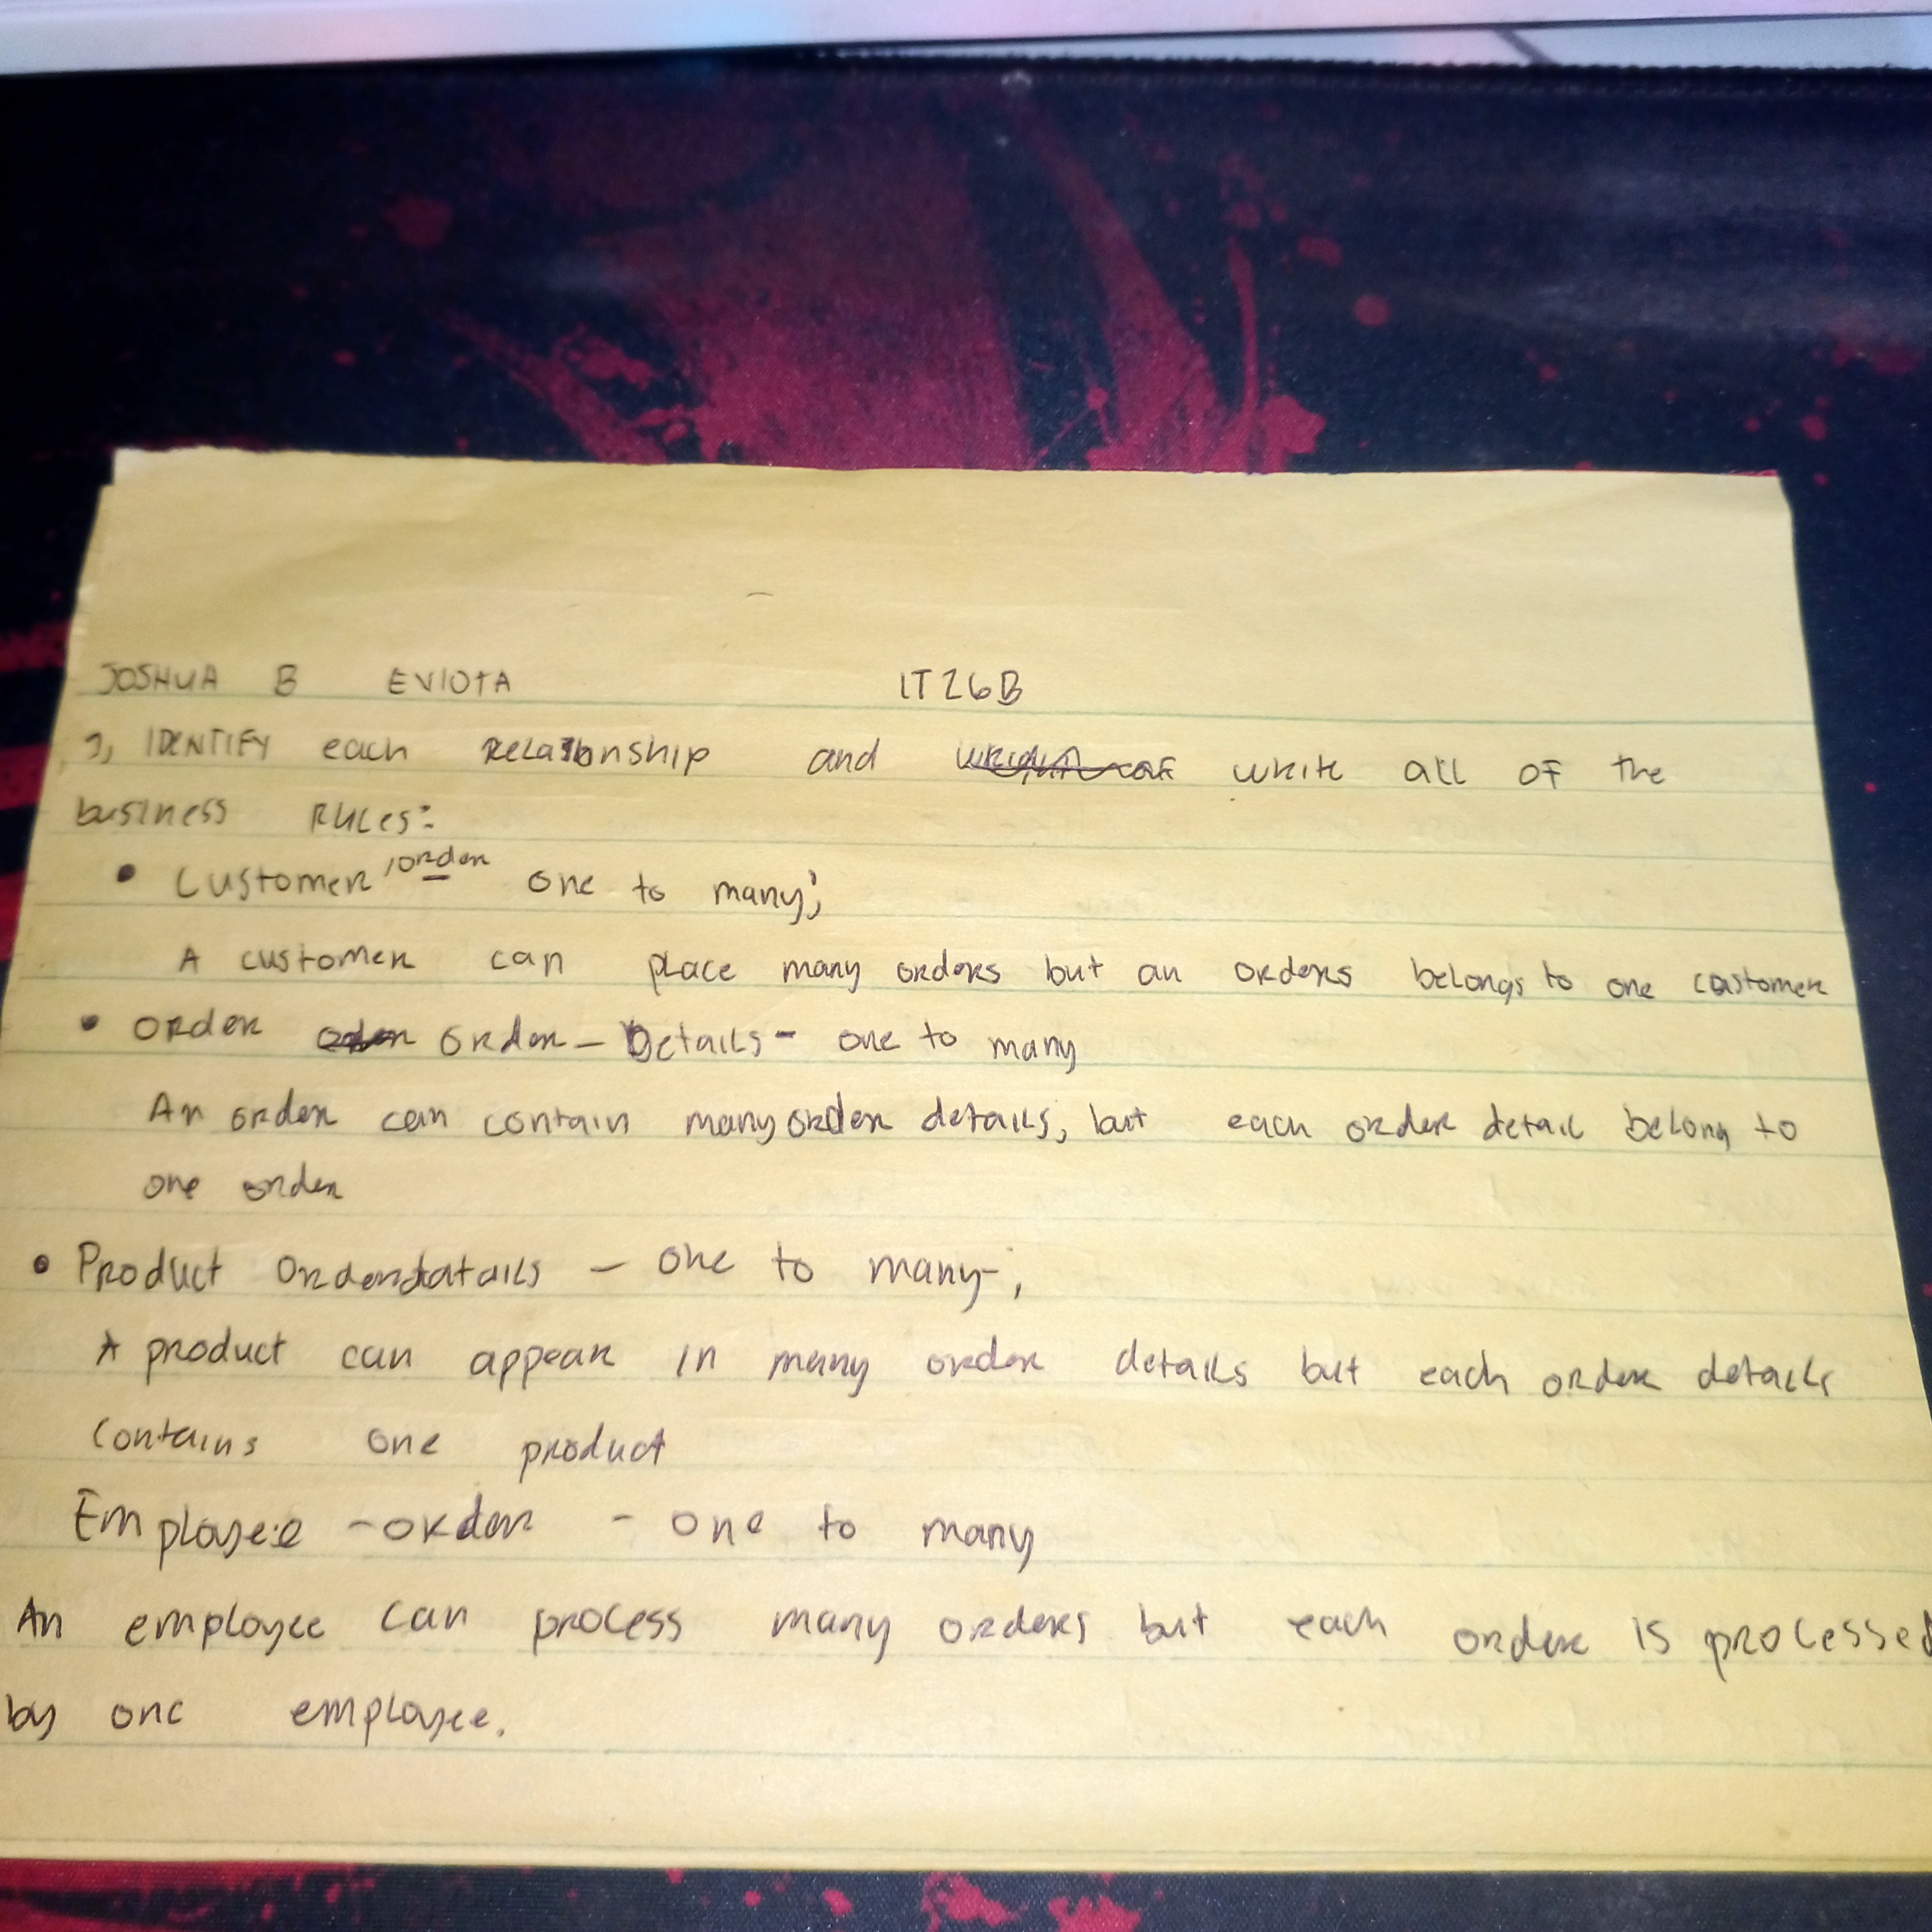 JOSHUA B EVIOTA IT26B
1, IDENTIFY each Relationship and write all OF the
business RULES:
• Customer, order one to many;
A customer can place many orders but an orders belongs to one customer
• Order Order - Details - one to many
An order can contain many order details, but each order detail belong to
one order
• Product Orderdatails - one to many-;
A product can appear in many order details but each order details
contains one product
Employee - order - one to many
An employee can process many orders but each order is processed
by one employee.